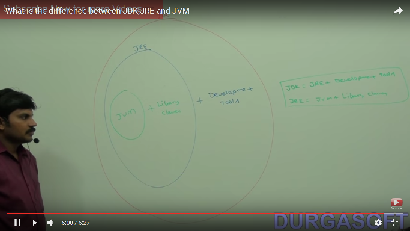 What is the difference between JDK JRE and JVM
JRE
JVM
+
Library
Classes
+
Development
tools
JDK = JRE + Development tools
JRE = JVM + Library classes
DURGASOFT